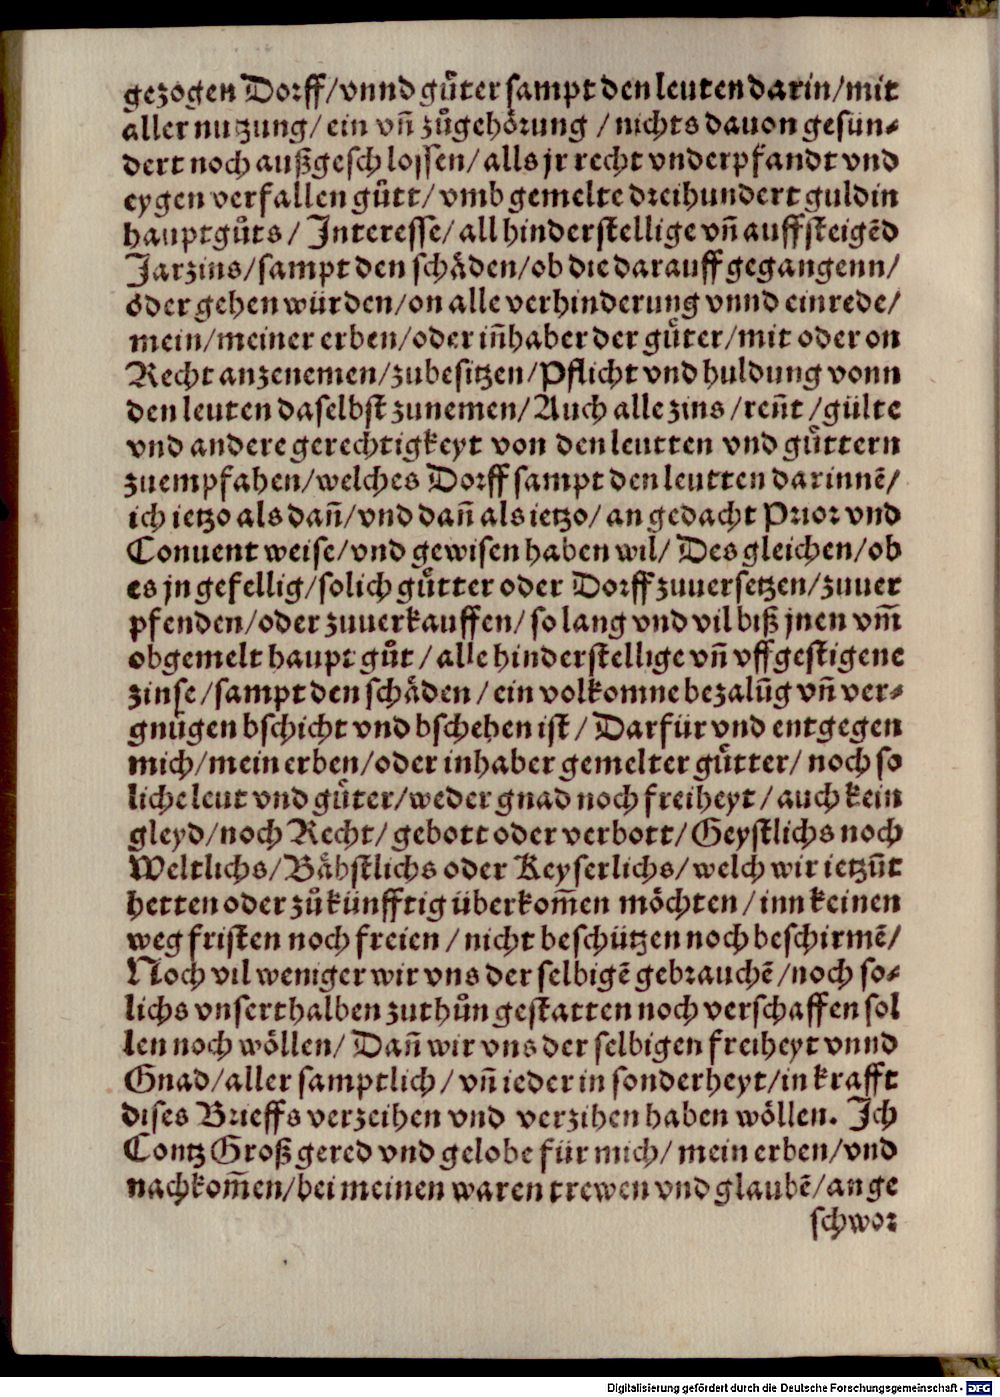 gezogen Dorff/vnnd guͤter sampt den leuten darin/mit
aller nutzung/ein vñ zuͦgehoͤrung /nichts dauon gesun-
dert noch außgeschlossen/alls jr recht vnderpfandt vnd
eygen verfallen guͦtt/vmb gemelte dreihundert guldin
hauptguͦts/ Interesse/all hinderstellige vñ auffsteigẽd
Jarzins/sampt den schaͤden/ob die darauff gegangenn/
oder gehen würden/on alle verhinderung vnnd einrede/
mein/meiner erben/oder iñhaber der guͤter/mit oder on
Recht anzenemen/zubesitzen/Pflicht vnd huldung vonn
den leuten daselbst zunemen/Auch alle zins/reñt/gülte
vnd andere gerechtigkeyt von den leutten vnd guͤttern
zuempfahen/welches Dorff sampt den leutten darinnẽ/
ich ietzo als dañ/vnd dañ als ietzo/an gedacht Prior vnd
Conuent weise/vnd gewisen haben wil/ Des gleichen/ob
es jn gefellig/solich guͤtter oder Dorff zuuersetzen/zuuer
pfenden/oder zuuerkauffen/so lang vnd vil biß jnen vm̃
obgemelt haupt guͦt /alle hinderstellige vñ vffgestigene
zinse/sampt den schaͤden/ein volkomne bezalũg vñ ver-
gnuͤgen bschicht vnd bschehen ist/ Darfür vnd entgegen
mich/mein erben/oder inhaber gemelter guͤtter/ noch so
liche leut vnd guͤter/weder gnad noch freiheyt/auch kein
gleyd/noch Recht/gebott oder verbott/Geystlichs noch
Weltlichs/Baͤbstlichs oder Keyserlichs/welch wir ietzũt
hetten oder zuͦkünfftig überkom̃en moͤchten/inn keinen
weg fristen noch freien /nicht beschützen noch beschirmẽ/
Noch vil weniger wir vns der selbigẽ gebrauchẽ/noch so-
lichs vnserthalben zuthuͦn gestatten noch verschaffen sol
len noch woͤllen/ Dañ wir vns der selbigen freiheyt vnnd
Gnad/aller samptlich/vñ ieder in sonderheyt/in krafft
dises Brieffs verzeihen vnd verzihen haben woͤllen. Ich
Contz Groß gered vnd gelobe für mich/ mein erben/vnd
nachkom̃en/bei meinen waren trewen vnd glaubẽ/an ge
schwor
Digitalisierung gefördert durch die Deutsche Forschungsgemeinschaft - DFG